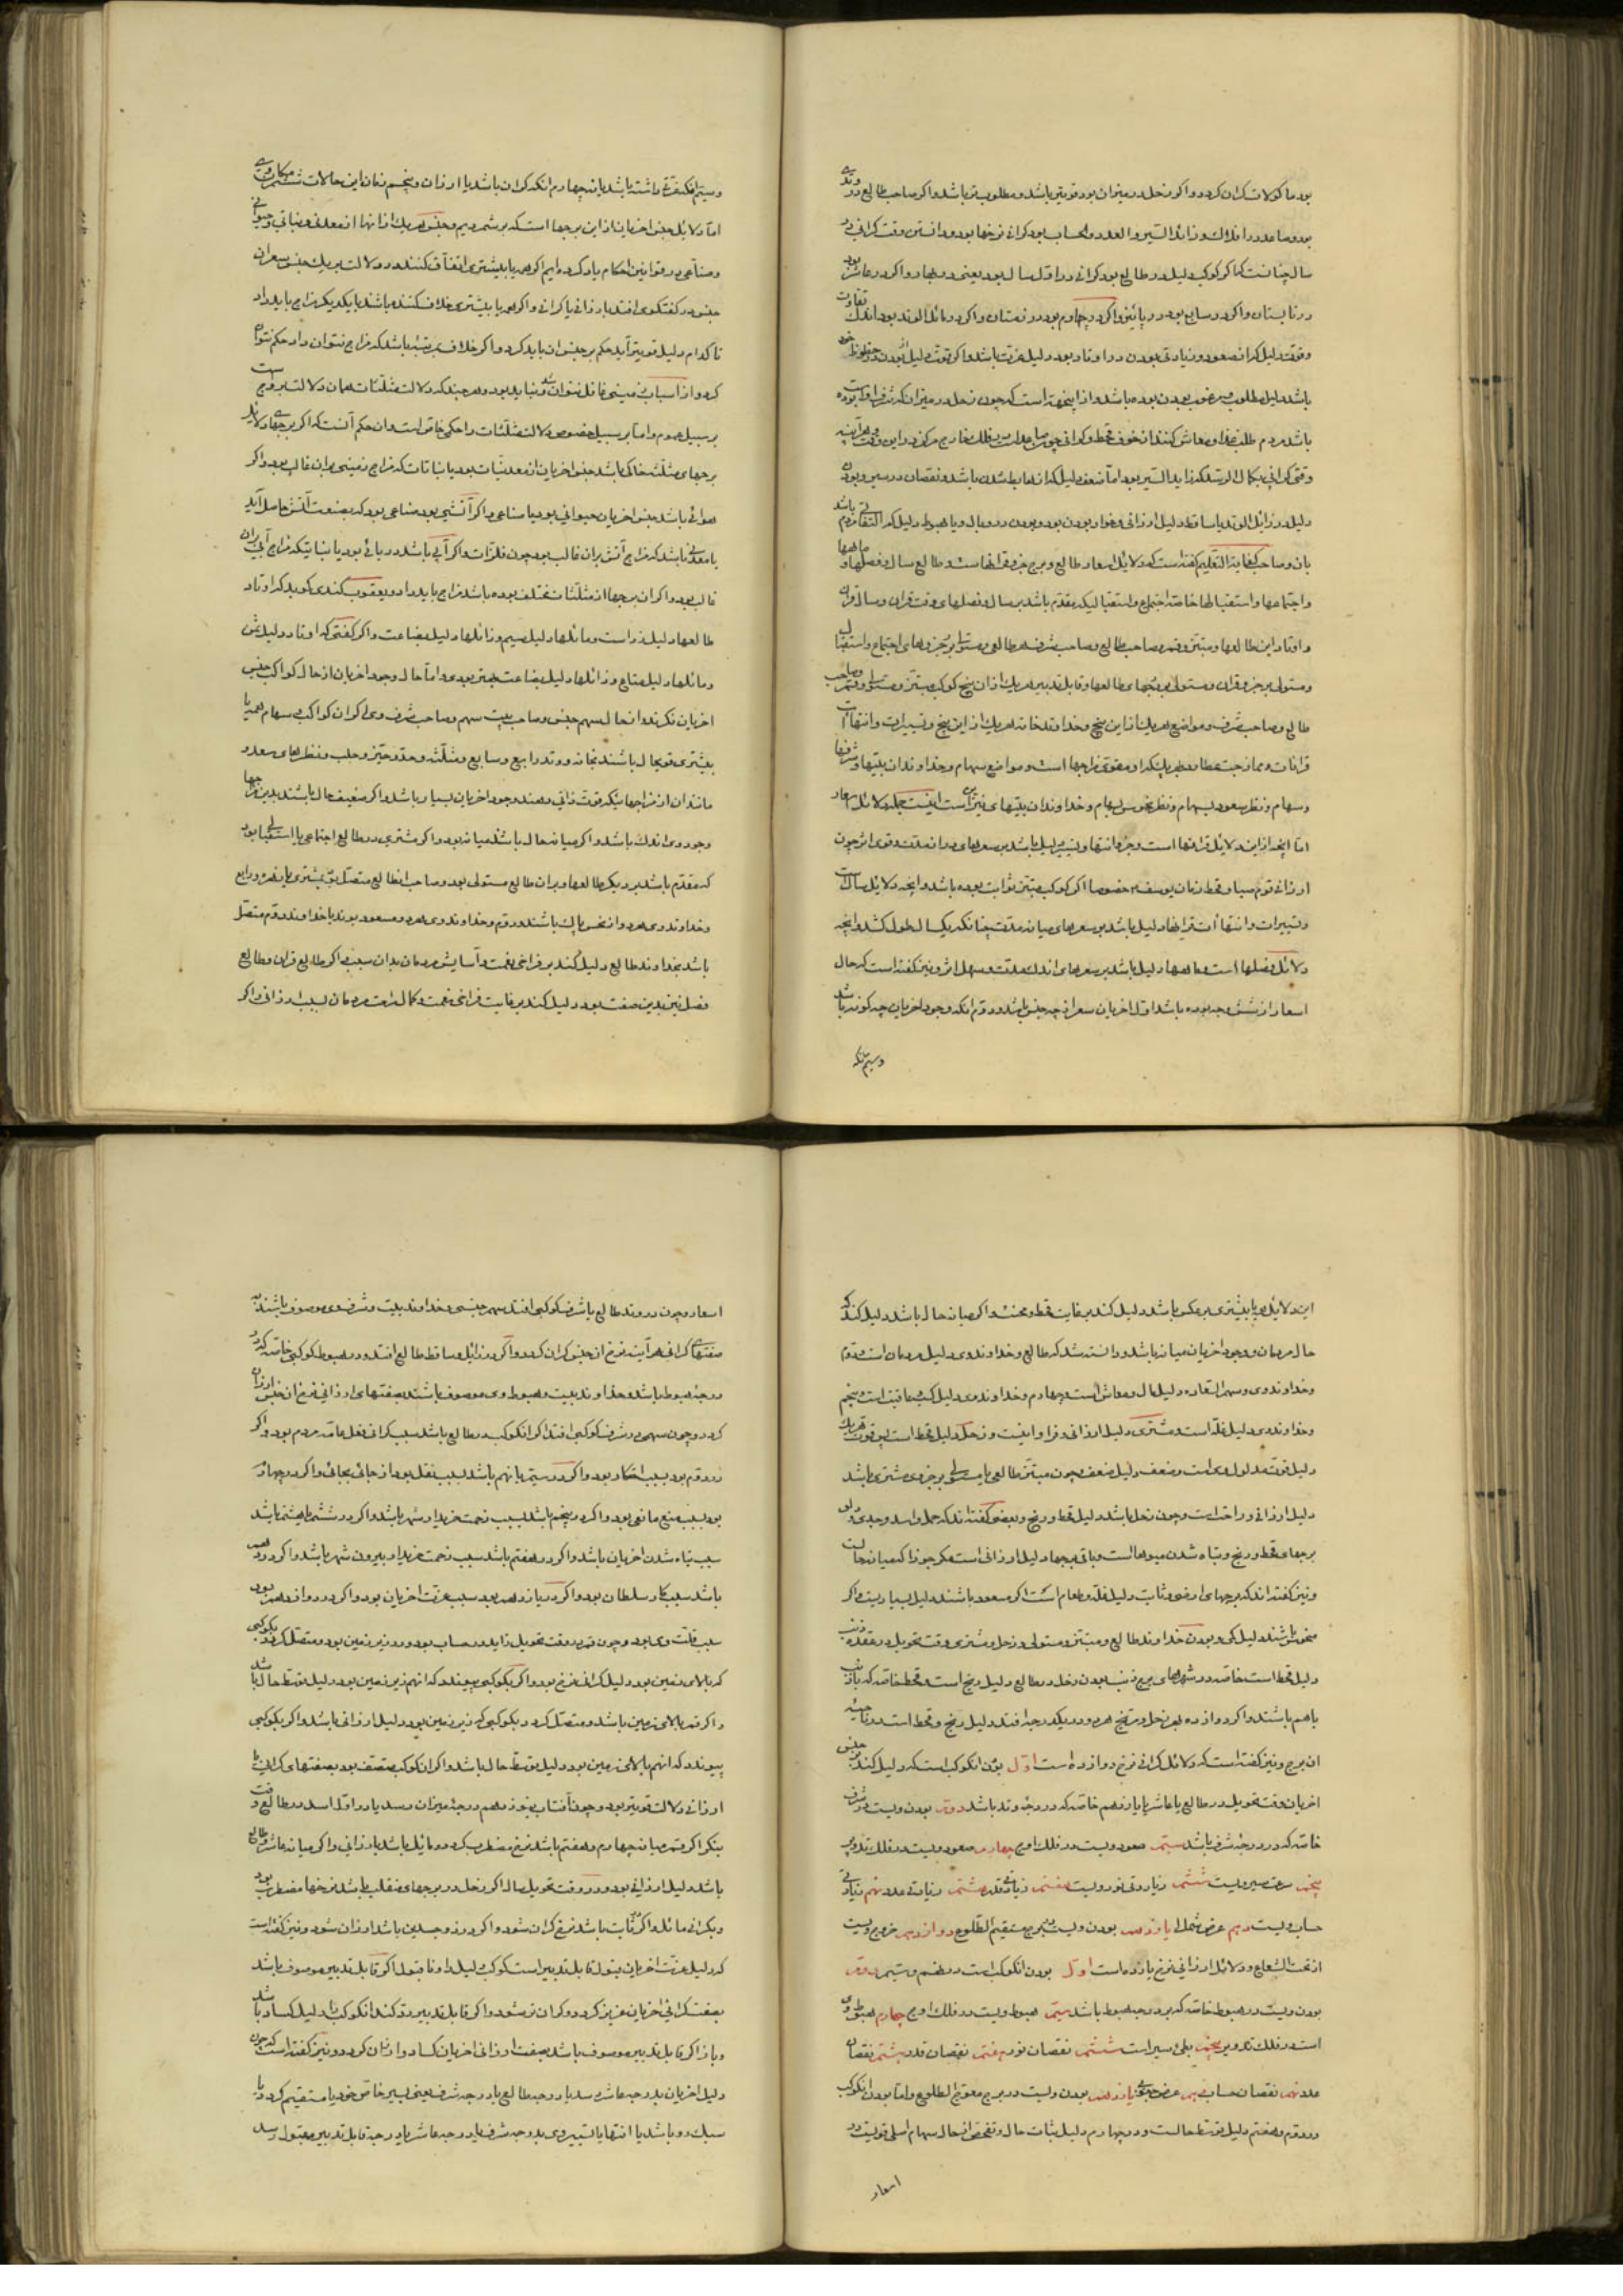 بود ماکولات گران گردد واگر زحل در میزان بود قویتر باشد و مطلوب تر باشد واگر صاحب طالع در وتدی
بود و صاعد در افلاک و زائد السیر و العدد و الحساب بود گرانی نرخها بود و دانستن وقت گرانی در
سال چنانست که اگر کوکب دلیل در طالع بود گرانی در اول سال بود یعنی در بهار واگر در عاشر بود
در تابستان واگر در سابع بود در پائیز واگر در چهارم بود در زمستان واگر در مائل الوتد بود اندک تفاوت
باشد دلیل مطلوب و مرغوب بودن بوده باشد و از اینجهة است که چون زحل در میزان که شرف اوست بوده
باشد مردم طلب غذا و معاش کنند از خوف قحط و گرانی
وقتی گرانی بکمال رسد که زاید السیر بود اما ضعف دلیل که از هابط شدن باشد و نقصان در سیر و بودن
دلیل در زائل الوتد یا ساقط دلیل ارزانی و خوار بودن بود و بودن در وبال و یا هبوط دلیل کم التفاتی مردم باشد
بان و صاحب کفایة التعلیم گفته است که دلایل اسعار طالع و برج جزو قرانها است و طالع سال و فصلها و ماهها
و اجتماعها و استقبالها خاصه اجتماع و استقبالیکه مقدم باشد بر سال و فصلهای وقت قران و سال قران
و اوتاد این طالعها و مبتز و قمر و صاحب طالع و صاحب شرف هر طالعی و مستولی بر جزوهای اجتماع و استقبال
و مستولی بر جزو قران و مستولی بر برجهای طالعها و قابل تدبیر هر یک از ان پنج کوکب مبتز و مستولی و قمر و صاحب
طالع و صاحب شرف و مواضع هر یک از این پنج و خداوند خانه هر یک از این پنج و تسییرات و انتهاآت
و سهام و نظر سعود بسهام و نظر نحوس بسهام و خداوندان بیتهای نیز این است اینست جمله دلائل اسعار
اما انچه از این دلائل قرانها است و جزو انتها و تسییر دلیل باشد بر سعرهای دراز مدت و قوی اثر چون
ارزانی قوم سبا و قحط زمان یوسف خصوصا اگر کوکب مبتز ثوابت بوده باشد و انچه دلائل سالست
و تسییرات و انتهاآت قرانها دلیل باشد بر سعرهای میانه مدت چنانکه یکسال طول کشد و انچه
دلائل فصلها است و ماهها دلیل باشد بر سعرهای اندک مدت و سهل اثر و نیز گفته است که حال
اسعار از شش وجه بوده باشد اول اخریان سعران چه جنس باشد و دوم انکه وجود اخریان چه گونه باشد
وسیم انکه
وسیم انکه قیمت داشته باشد یا نه چهارم انکه گران باشد یا ارزان و پنجم زمان این حالات ششم مکان وی
اما دلائل جنس اخریان از این برجها است که بر شمردیم و جنس هر یک از انها از معدنی و نباتی و حیوانی
و صناعی در قوانین احکام یاد کرده ایم اگر همه یا بیشتری اتفاق کنند در دلالت بر یک جنس سعر ان
جنس در گفتگوی افتد بارزانی یا گرانی واگر همه یا بیشتری خلاف کننده باشند با یکدیگر مزاج باید داد
تا کدام دلیل قویتر آید حکم بر جنس ان باید کرد واگر خلاف بمرتبه باشد که مزاج نتوان داد حکم نتوان
بر سبیل عموم و اما بر سبیل خصوص دلالت مثلثات را حکمی خاص است و ان حکم آنست که اگر برجهای دلائل
برجهای مثلثه خاکی باشد جنس اخریان از معدنیات بود یا نباتات که مزاج زمینی بر ان غالب بود واگر
هوائی باشد جنس اخریان حیوانی بود یا صناعی واگر آتشی بود صناعی بود که بصنعت آتش حاصل آید
یا معدنی باشد که مزاج آتش بر ان غالب بود چون فلزات واگر آبی باشد دریائی بود یا نباتیکه مزاج آبی بر ان
غالب بود واگر ان برجها از مثلثات مختلف بوده باشد مزاج باید داد و یعقوب کندی گوید که اوتاد
طالعها دلیل زر است و مائلها دلیل سیم و زائلها دلیل بضاعت
اخریان نگرند و از حال سهم جنس و صاحب بیت سهم و صاحب شرف وی اگر ان کواکب و سهام همه یا
بیشتری قویحال باشند بخانه و وتد رابع و سابع و مثلثه و حد و حیز و حلب و نظرهای سعد و
مانند ان از مزاجها نیکه قوت ذاتی دهند وجود اخریان بسیار باشد واگر ضعیف حال باشند بدین مزاجها
وجود وی اندک باشد واگر میانه حال باشند میانه بود واگر مشتری در طالع اجتماعی یا استقبالی بود
و خداوند وی هر دو از نحس پاک باشند و دوم و خداوند وی هر دو مسعود بوند یا خداوند دوم متصل
باشد بخداوند طالع دلیل کند بر فراخی نعمت و آسایش مردمان بدان سبب واگر طالع قران و طالع
فصل نیز بدین صفت بود دلیل کند بر غایت فراخی نعمت و کمال راحت مردمان بسبب ارزانی واگر
این دلائل همه یا بیشتری بر عکس باشد دلیل کند بر غایت قحط و محنت واگر میانه حال باشد دلیل کند که
حال مردمان و وجود اخریان میانه باشد و دانسته شد که طالع و خداوند وی دلیل مردمان است و دوم
و خداوند وی و سهم السعاده دلیل مال و معاش است و چهارم و خداوند وی دلیل کسب عاقبت است و پنجم
و خداوند وی دلیل غله است و مشتری دلیل ارزانی و فراوانیست و زحل دلیل قحط است پس قوت هر یک
دلیل قوت مدلول وی است و ضعف دلیل ضعف چون مبتز طالعی یا مستولی بر جزوی مشتری باشد
دلیل ارزانی و راحت است و چون زحل باشد دلیل قحط و رنج و بعضی گفته اند که حمل و اسد و جدی و دلو
برجهای قحط و رنج و تباه شدن میوها است و باقی برجها دلیل ارزانی است مگر جوزا که میانه حالست
و نیز گفته اند که برجهای ارضی و ثابت دلیل غله و طعام است اگر مسعود باشند دلیل بسیاریست واگر
منحوس باشند دلیل کمی و بودن خداوند طالع و مبتز و مستولی و زحل و مشتری وقت تحویل در عقده ذنب
دلیل قحط است خاصه در شهرهای برج ذنب و بودن زحل در طالع دلیل رنج است و قحط خاصه که با ذنب
باهم باشند واگر در دوازدهم زحل و مریخ هر دو در یکدرجه افتد دلیل رنج و قحط است در ناحیه
ان برج و نیز گفته است که دلائل گرانی نرخ دوازده است اول بودن انکوکب است که دلیل کند بر جنس
اخریان وقت تحویل در طالع یا عاشر یا یازدهم خاصه که در درجه وتد باشد دوم بودن ویست در شرف
خاصه که در درجه شرف باشد سیم صعود ویست در فلک اوج چهارم صعود ویست در فلک تدویر
پنجم سرعت سیر ویست ششم زیادتی نور ویست هفتم زیادتی قدر هشتم زیادتی عدد نهم زیادتی
حساب ویست دهم عرض شمال یازدهم بودن ویست در برج مستقیم الطلوع دوازدهم خروج ویست
از تحت الشعاع و دلائل ارزانی نرخ یازده است اول بودن انکوکب است در هفتم و سیم دوم
بودن ویست در هبوط خاصه که بدرجه هبوط باشد سیم هبوط ویست در فلک اوج چهارم هبوط وی
است در فلک تدویر پنجم بطی سیر است ششم نقصان نور هفتم نقصان قدر هشتم نقصان
عدد نهم نقصان حساب دهم عرض جنوبی یازدهم بودن ویست در برج معوج الطلوع و اما بودن انکوکب
در دوم و هفتم دلیل توسط حالست و در چهارم دلیل ثبات حال و تفحص از حال سهام اصلی قویست در
اسعار
اسعار و چون در وتد طالع یا شرف کوکبی افتد سهم جنسی و خداوند بیت و شرف وی موصوف باشند به
صفتهای گرانی هر آینه نرخ ان جنس گران گردد واگر در زائل و ساقط طالع افتد و در هبوط کوکبی خاصه که در
درجه هبوط باشد و خداوند بیت و هبوط وی موصوف باشند بصفتهای ارزانی نرخ ان جنس ارزان
گردد و چون سهمی در شرف کوکبی افتد اگر انکوکب در طالع باشد سبب گرانی فعل عامه مردم بود واگر
در دوم بود بسبب احتکار بود واگر در سیم یا نهم باشد بسبب نقل بود از جائی بجائی واگر در چهارم
بود بسبب منع مانعی بود واگر در پنجم باشد بسبب زحمت خریدار شهر باشد واگر در ششم یا هشتم باشد
سبب تباه شدن اخریان باشد واگر در هفتم باشد سبب زحمت خریدار بیرون شهر باشد واگر در دهم
باشد سبب کار سلطان بود واگر در یازدهم بود سبب عزت اخریان بود واگر در دوازدهم بود
سبب قلت وی بود و چون قمر در وقت تحویل زاید در حساب بود و در زیر زمین بود و متصل گردد بکوکبی
که بالای زمین بود دلیل گرانی نرخ بود واگر بکوکبی پیوندد که انهم زیر زمین بود دلیل توسط حال باشد
واگر قمر بالای زمین باشد و متصل گردد بکوکبی که زیر زمین بود دلیل ارزانی باشد واگر بکوکبی
پیوندد که انهم بالای زمین بود دلیل توسط حال باشد واگر ان کوکب متصف بود بصفتهای گرانی یا
ارزانی دلالت قویتر بود و چون آفتاب بنوزدهم درجه میزان رسد یا در اول اسد در طالع وقت
بنگر اگر قمر میانه چهارم و هفتم باشد نرخ مضطرب گردد و مائل باشد بارزانی واگر میانه عاشر و طالع
باشد دلیل ارزانی بود و در وقت تحویل سال اگر زحل در برجهای منقلب باشد نرخها مضطرب بود
و بگرانی مائل واگر در ثابت باشد نرخ گران شود واگر در ذو جسدین باشد ارزان شود و نیز گفته است
که دلیل عزت اخریان قبول قابل تدبیر است کوکب دلیل را و نا قبول اگر قابل تدبیر موصوف باشد
بصفت گرانی اخریان عزیز گردد و گران تر شود واگر قابل تدبیر رد کند انکوکب را دلیل کساد باشد
و باز اگر قابل تدبیر موصوف باشد بصفت ارزانی اخریان کساد و ارزان گردد و نیز گفته است که چون
دلیل اخریان بدرجه عاشر رسد یا درجه طالع یا درجه شرف یعنی بسیر خاص خود یا مستقیم گردد یا
سبک رو باشد یا انتها یا تسییر وی بدرجه شرف یا درجه عاشر یا درجه قابل تدبیر مقبول رسد